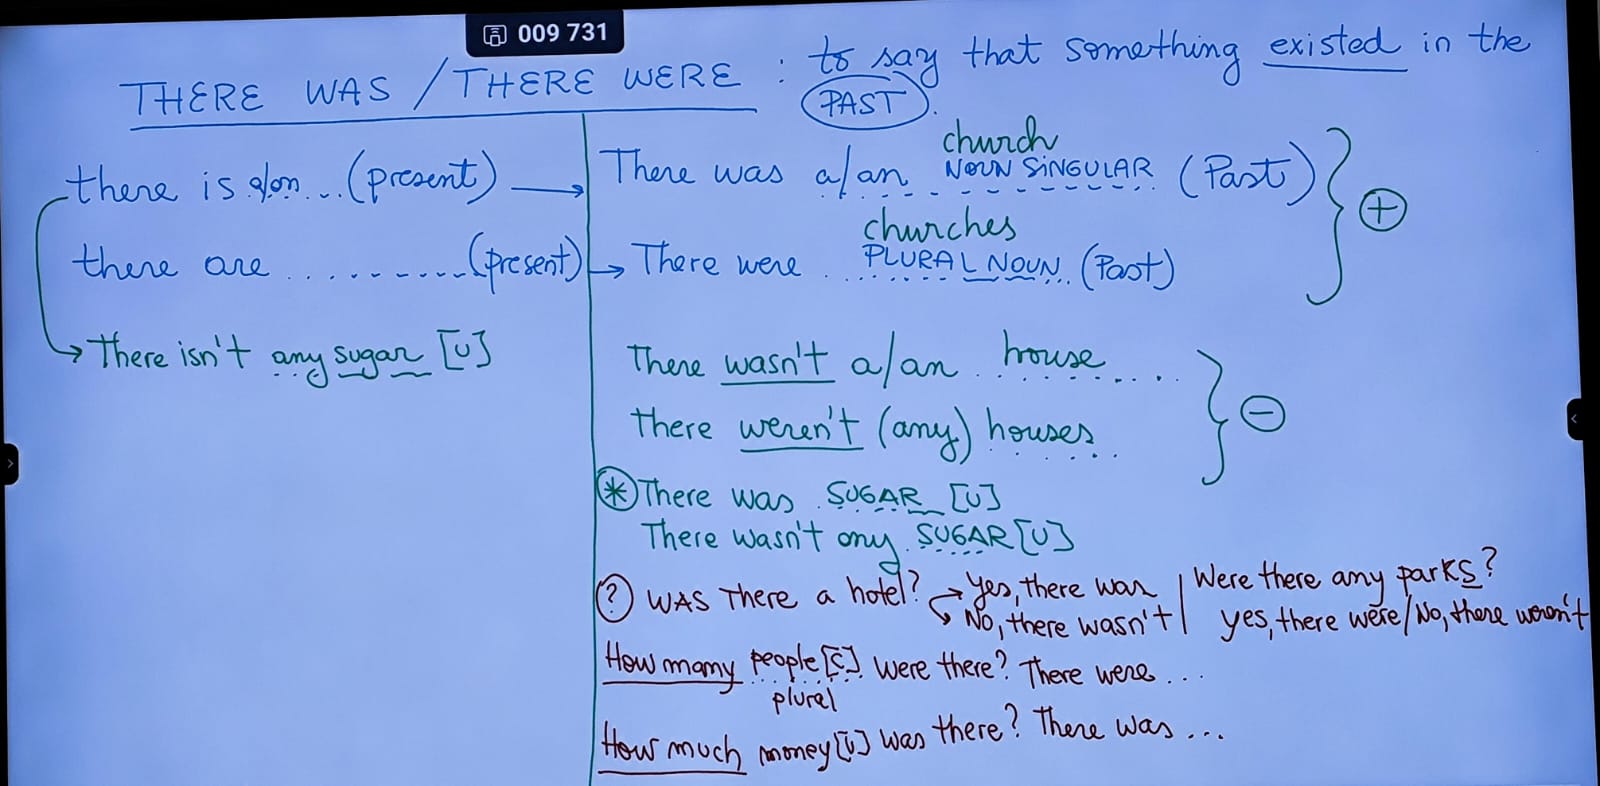 009 731
THERE WAS / THERE WERE : to say that something existed in the
PAST.
there is a/an ... (present) → There was a/an church NOUN SINGULAR (Past)
+
there are .......... (present) → There were churches PLURAL NOUN (Past)
→ There isn't any sugar [U]
There wasn't a/an house....
There weren't (any) houses...
−
* There was SUGAR [U]
There wasn't any SUGAR [U]
? WAS There a hotel? → Yes, there was
↘ No, there wasn't
Were there any parks?
yes, there were / No, there weren't
How many people [C] were there? There were ...
plural
How much money [U] was there? There was ...